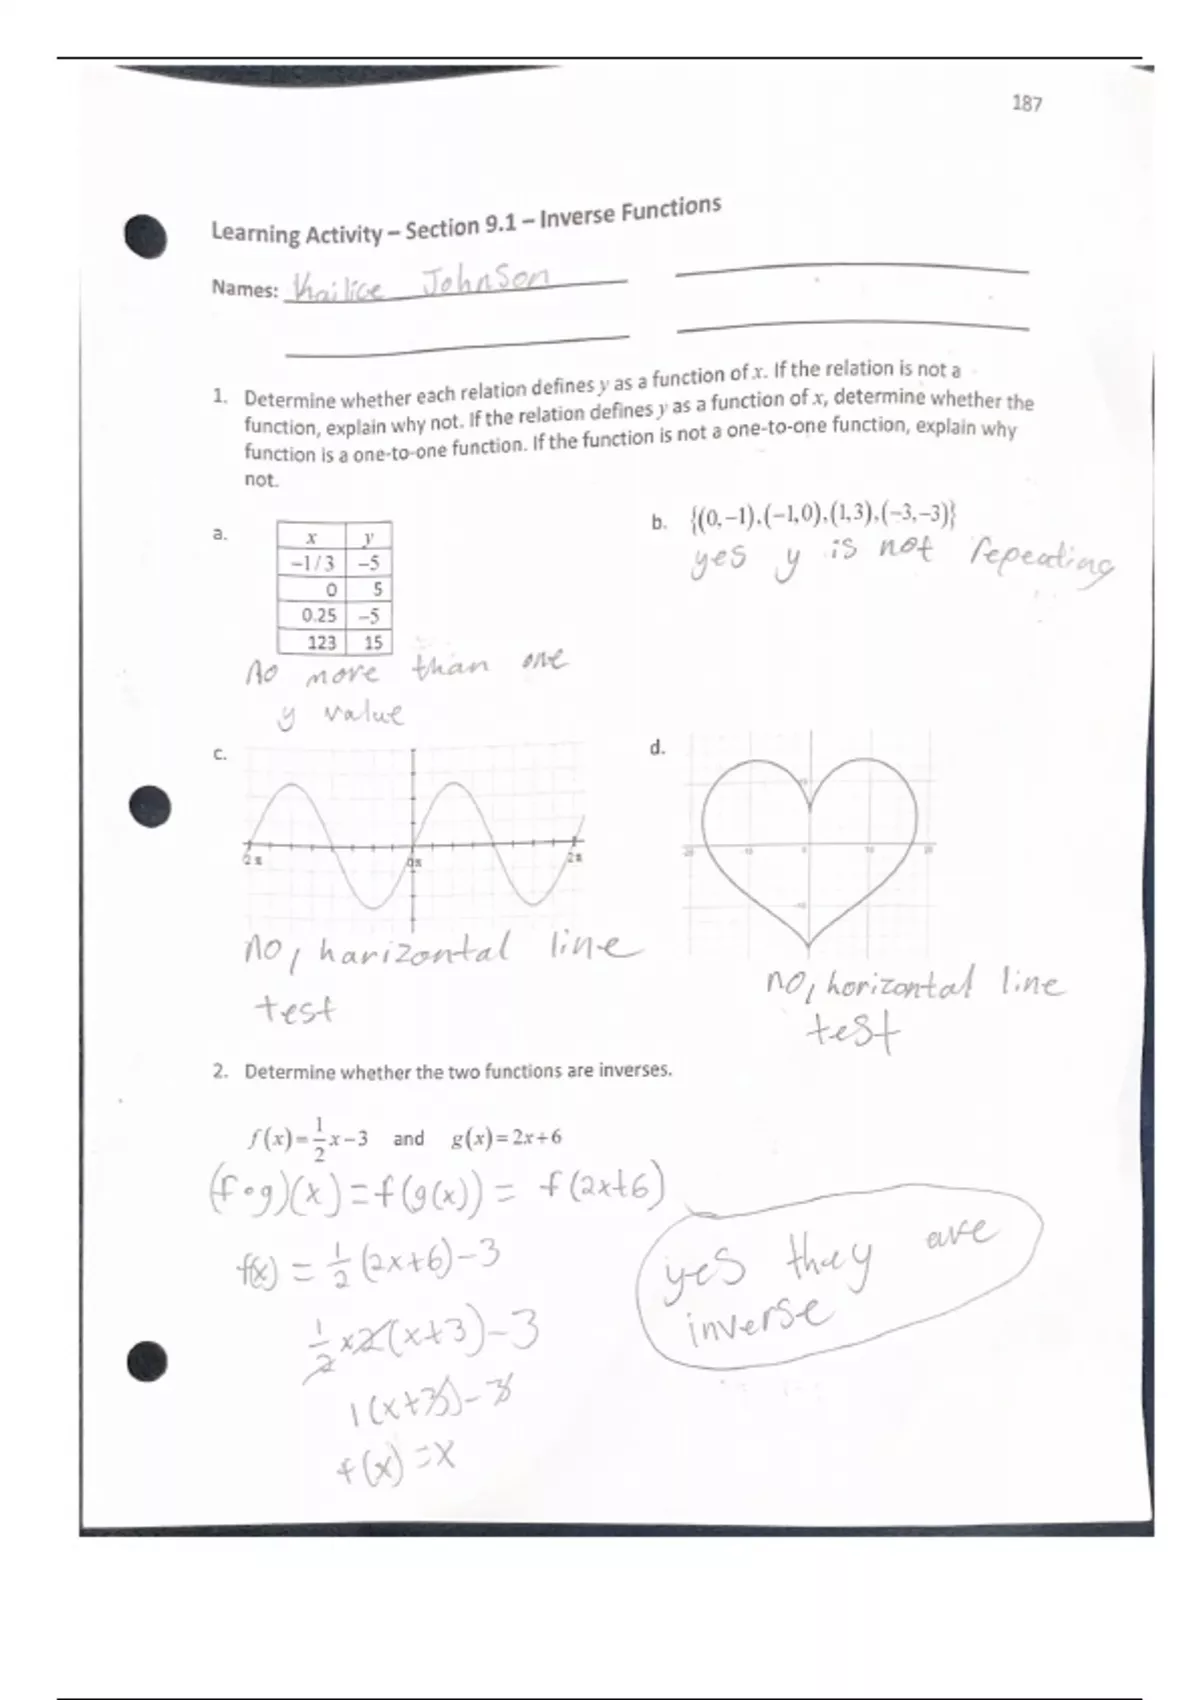 187
Learning Activity – Section 9.1 – Inverse Functions
Names: Khailice Johnson
1. Determine whether each relation defines y as a function of x. If the relation is not a
function, explain why not. If the relation defines y as a function of x, determine whether the
function is a one-to-one function. If the function is not a one-to-one function, explain why
not.
a.
x y
−1/3 −5
0 5
0.25 −5
123 15
No more than one
y value
b. {(0,−1),(−1,0),(1,3),(−3,−3)}
yes y is not repeating
c.
2π 0π 2π
no, harizontal line
test
d.
-20 -10 0 10 20
no, horizontal line
test
2. Determine whether the two functions are inverses.
f(x)=1/2x−3 and g(x)=2x+6
(f∘g)(x)=f(g(x)) = f(2x+6)
f(x) = 1/2(2x+6)−3
1/2x2(x+3)−3
1(x+3)−3
f(x)=x
yes they are
inverse